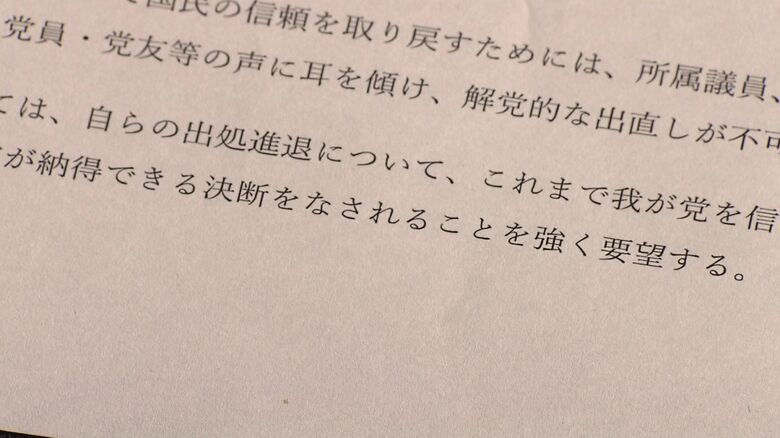 国民の信頼を取り戻すためには、所属議員、
党員・党友等の声に耳を傾け、解党的な出直しが不可
ては、自らの出処進退について、これまで我が党を信
が納得できる決断をなされることを強く要望する。